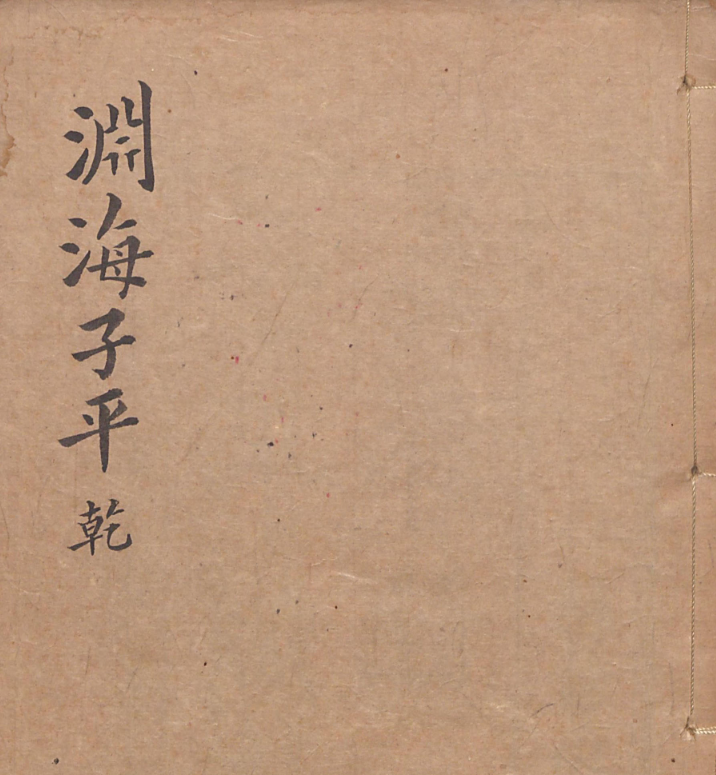 淵海子平 乾